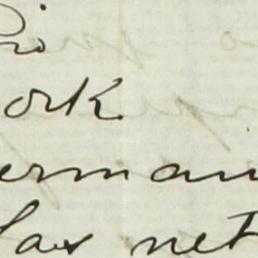 ork
erman
las net